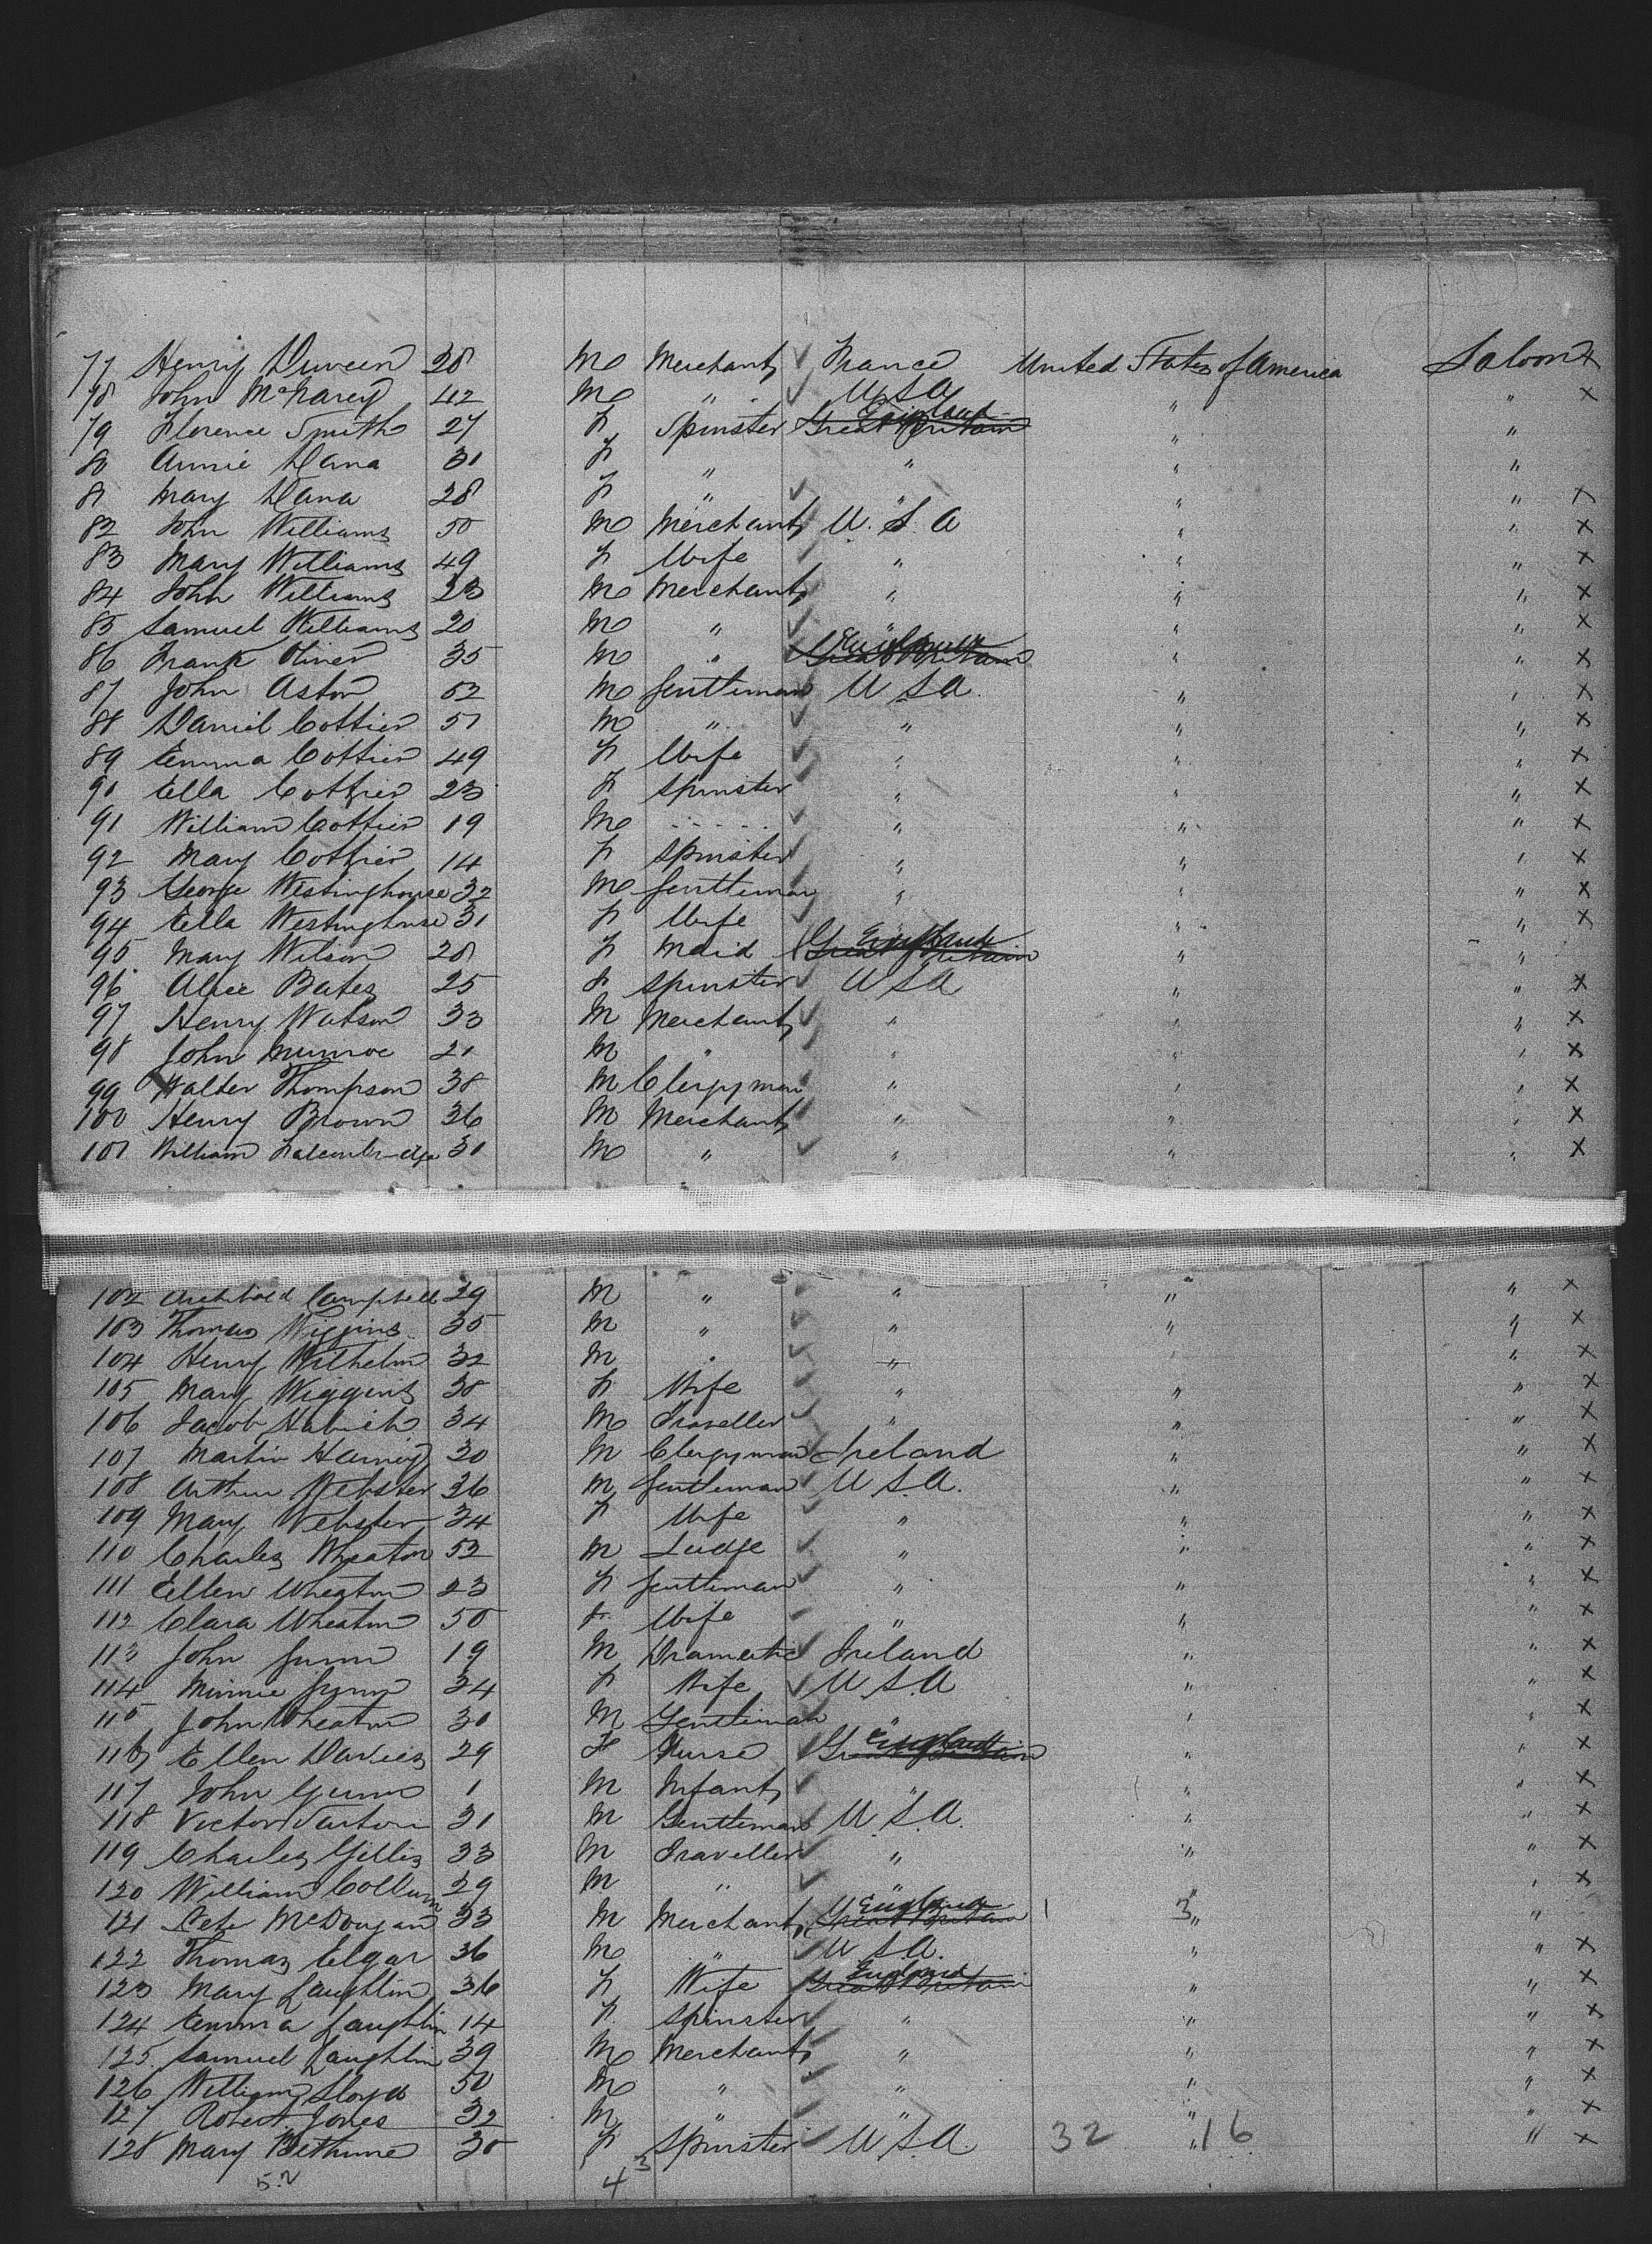 77 Henry Duveen 28 M Merchant ✓ France United States of America Saloon x
78 John McNarey 42 M " ✓ U S A " " x
79 Florence Smith 27 F Spinster England Great Britain " "
80 Annie Dana 31 F " " " "
81 Mary Dana 28 F " ✓ " " " x
82 John Williams 50 M Merchant ✓ U. S. A " " x
83 Mary Williams 49 F Wife ✓ " " " x
84 John Williams 23 M Merchant ✓ " " " x
85 Samuel Williams 20 M " ✓ " " " x
86 Frank Oliver 35 M " ✓ England Great Britain " " x
87 John Astor 52 M Gentleman U S A. " " x
88 Daniel Cottier 51 M " ✓ " " " x
89 Emma Cottier 49 F Wife ✓ " " " x
90 Ella Cottier 23 F Spinster ✓ " " " x
91 William Cottier 19 M ...... ✓ " " " x
92 Mary Cottier 14 F Spinster ✓ " " " x
93 George Westinghouse 32 M Gentleman " " " x
94 Ella Westinghouse 31 F Wife ✓ " " " x
95 Mary Wilson 28 F Maid England Great Britain " "
96 Alice Bates 25 F Spinster ✓ U S A " " x
97 Henry Watson 33 M Merchant ✓ " " " x
98 John Munroe 21 M " ✓ " " " x
99 Walter Thompson 38 M Clergyman " " " x
100 Henry Brown 36 M Merchant ✓ " " " x
101 William 30 M " ✓ " " " x
102 Archibald Campbell 29 M " ✓ " " " x
103 Thomas Wiggins 35 M " ✓ " " " x
104 Henry Wilhelm 32 M " ✓ " " " x
105 Mary Wiggins 38 F Wife ✓ " " " x
106 Jacob Habich 34 M Traveller ✓ " " " x
107 Martin 30 M Clergyman Ireland " " x
108 Arthur Webster 36 M Gentleman ✓ U S.A. " " x
109 Mary Webster 34 F Wife ✓ " " " x
110 Charles Wheaton 52 M Judge ✓ " " " x
111 Ellen Wheaton 23 F Gentleman ✓ " " " x
112 Clara Wheaton 50 F Wife ✓ " " " x
113 John Gunn 19 M Dramatic ✓ Ireland " " x
114 Minnie Gunn 34 F Wife ✓ U S.A " " x
115 John Wheaton 30 M Gentleman " " " x
116 Ellen Davies 29 F Nurse England Great Britain " " x
117 John Gunn 1 M Infant ✓ " " " x
118 Victor 31 M Gentleman ✓ U S.A. " " x
119 Charles Gillis 33 M Traveller ✓ " " " x
120 William Collum 29 M " ✓ " " " x
121 Pete McDougan 33 M Merchant England Great Britain 1 3 " "
122 Thomas Elgar 36 M " ✓ U S.A. " " x
123 Mary Laughlin 36 F Wife England Great Britain " " x
124 Emma Laughlin 14 F Spinster ✓ " " " x
125 Samuel Laughlin 39 M Merchant ✓ " " " x
126 William Lloyd 50 M " ✓ " " " x
127 Robert Jones 32 M " ✓ " " " x
128 Mary Bethune 30 F Spinster ✓ U S.A 32 " 16 " x
52 4 3